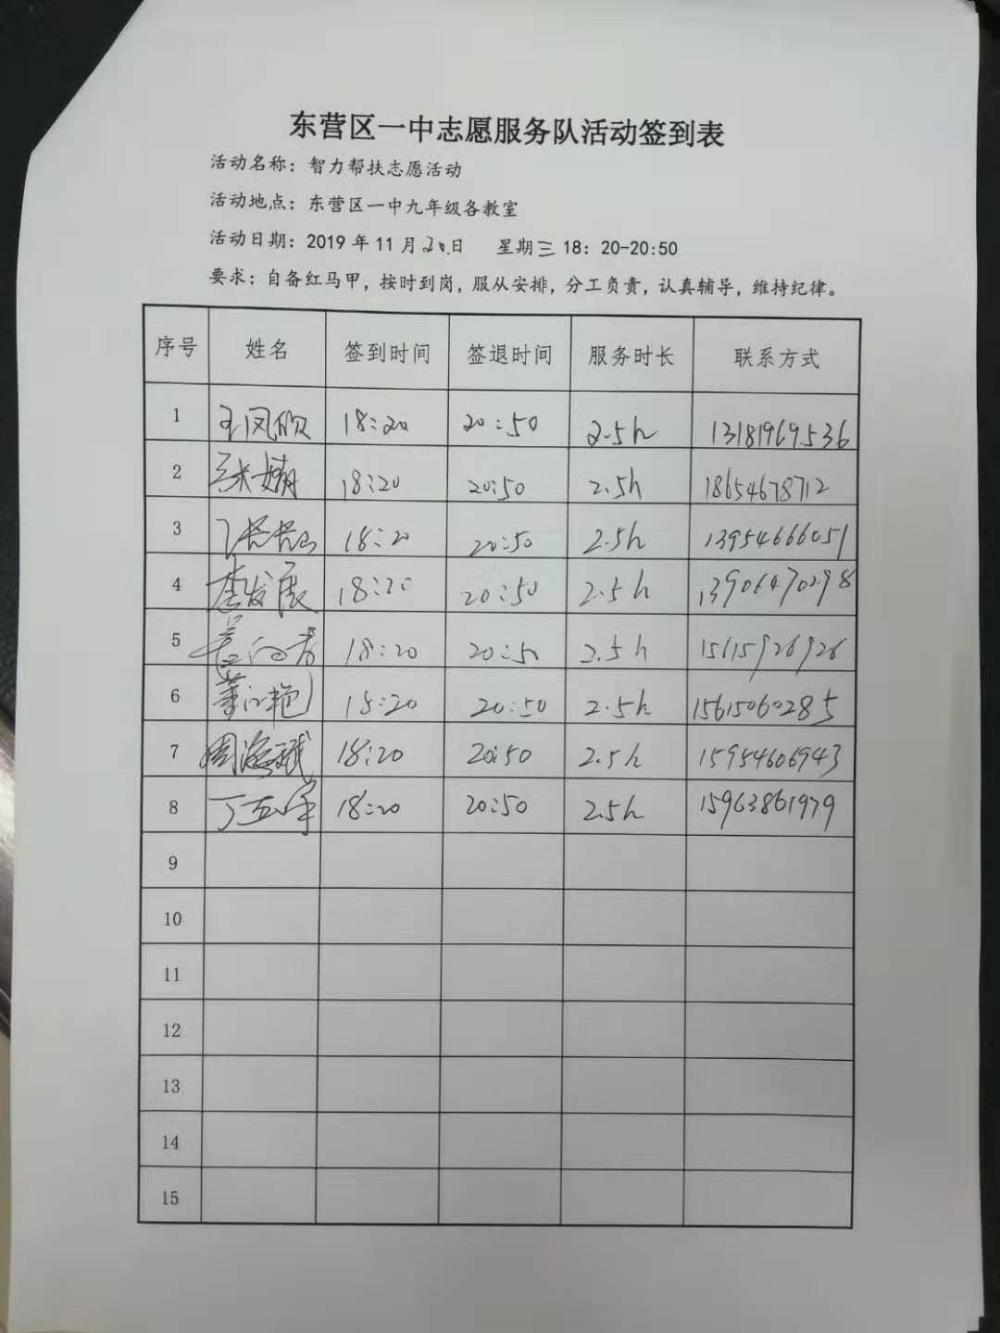 东营区一中志愿服务队活动签到表
活动名称：智力帮扶志愿活动
活动地点：东营区一中九年级各教室
活动日期：2019 年 11 月 20 日 星期三 18：20-20:50
要求：自备红马甲，按时到岗，服从安排，分工负责，认真辅导，维持纪律。
序号 姓名 签到时间 签退时间 服务时长 联系方式
1 王凤欣 18:20 20:50 2.5h 13181969536
2 张娟 18:20 20:50 2.5h 18654678712
3 18:20 20:50 2.5h 13954666051
4 李发展 18:20 20:50 2.5h 13906470298
5 18:20 20:50 2.5h 15615926926
6 董江艳 18:20 20:50 2.5h 15615060285
7 周海斌 18:20 20:50 2.5h 15954606943
8 18:20 20:50 2.5h 15963861979
9
10
11
12
13
14
15